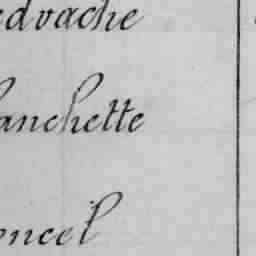 edvache
lanchette
oncel